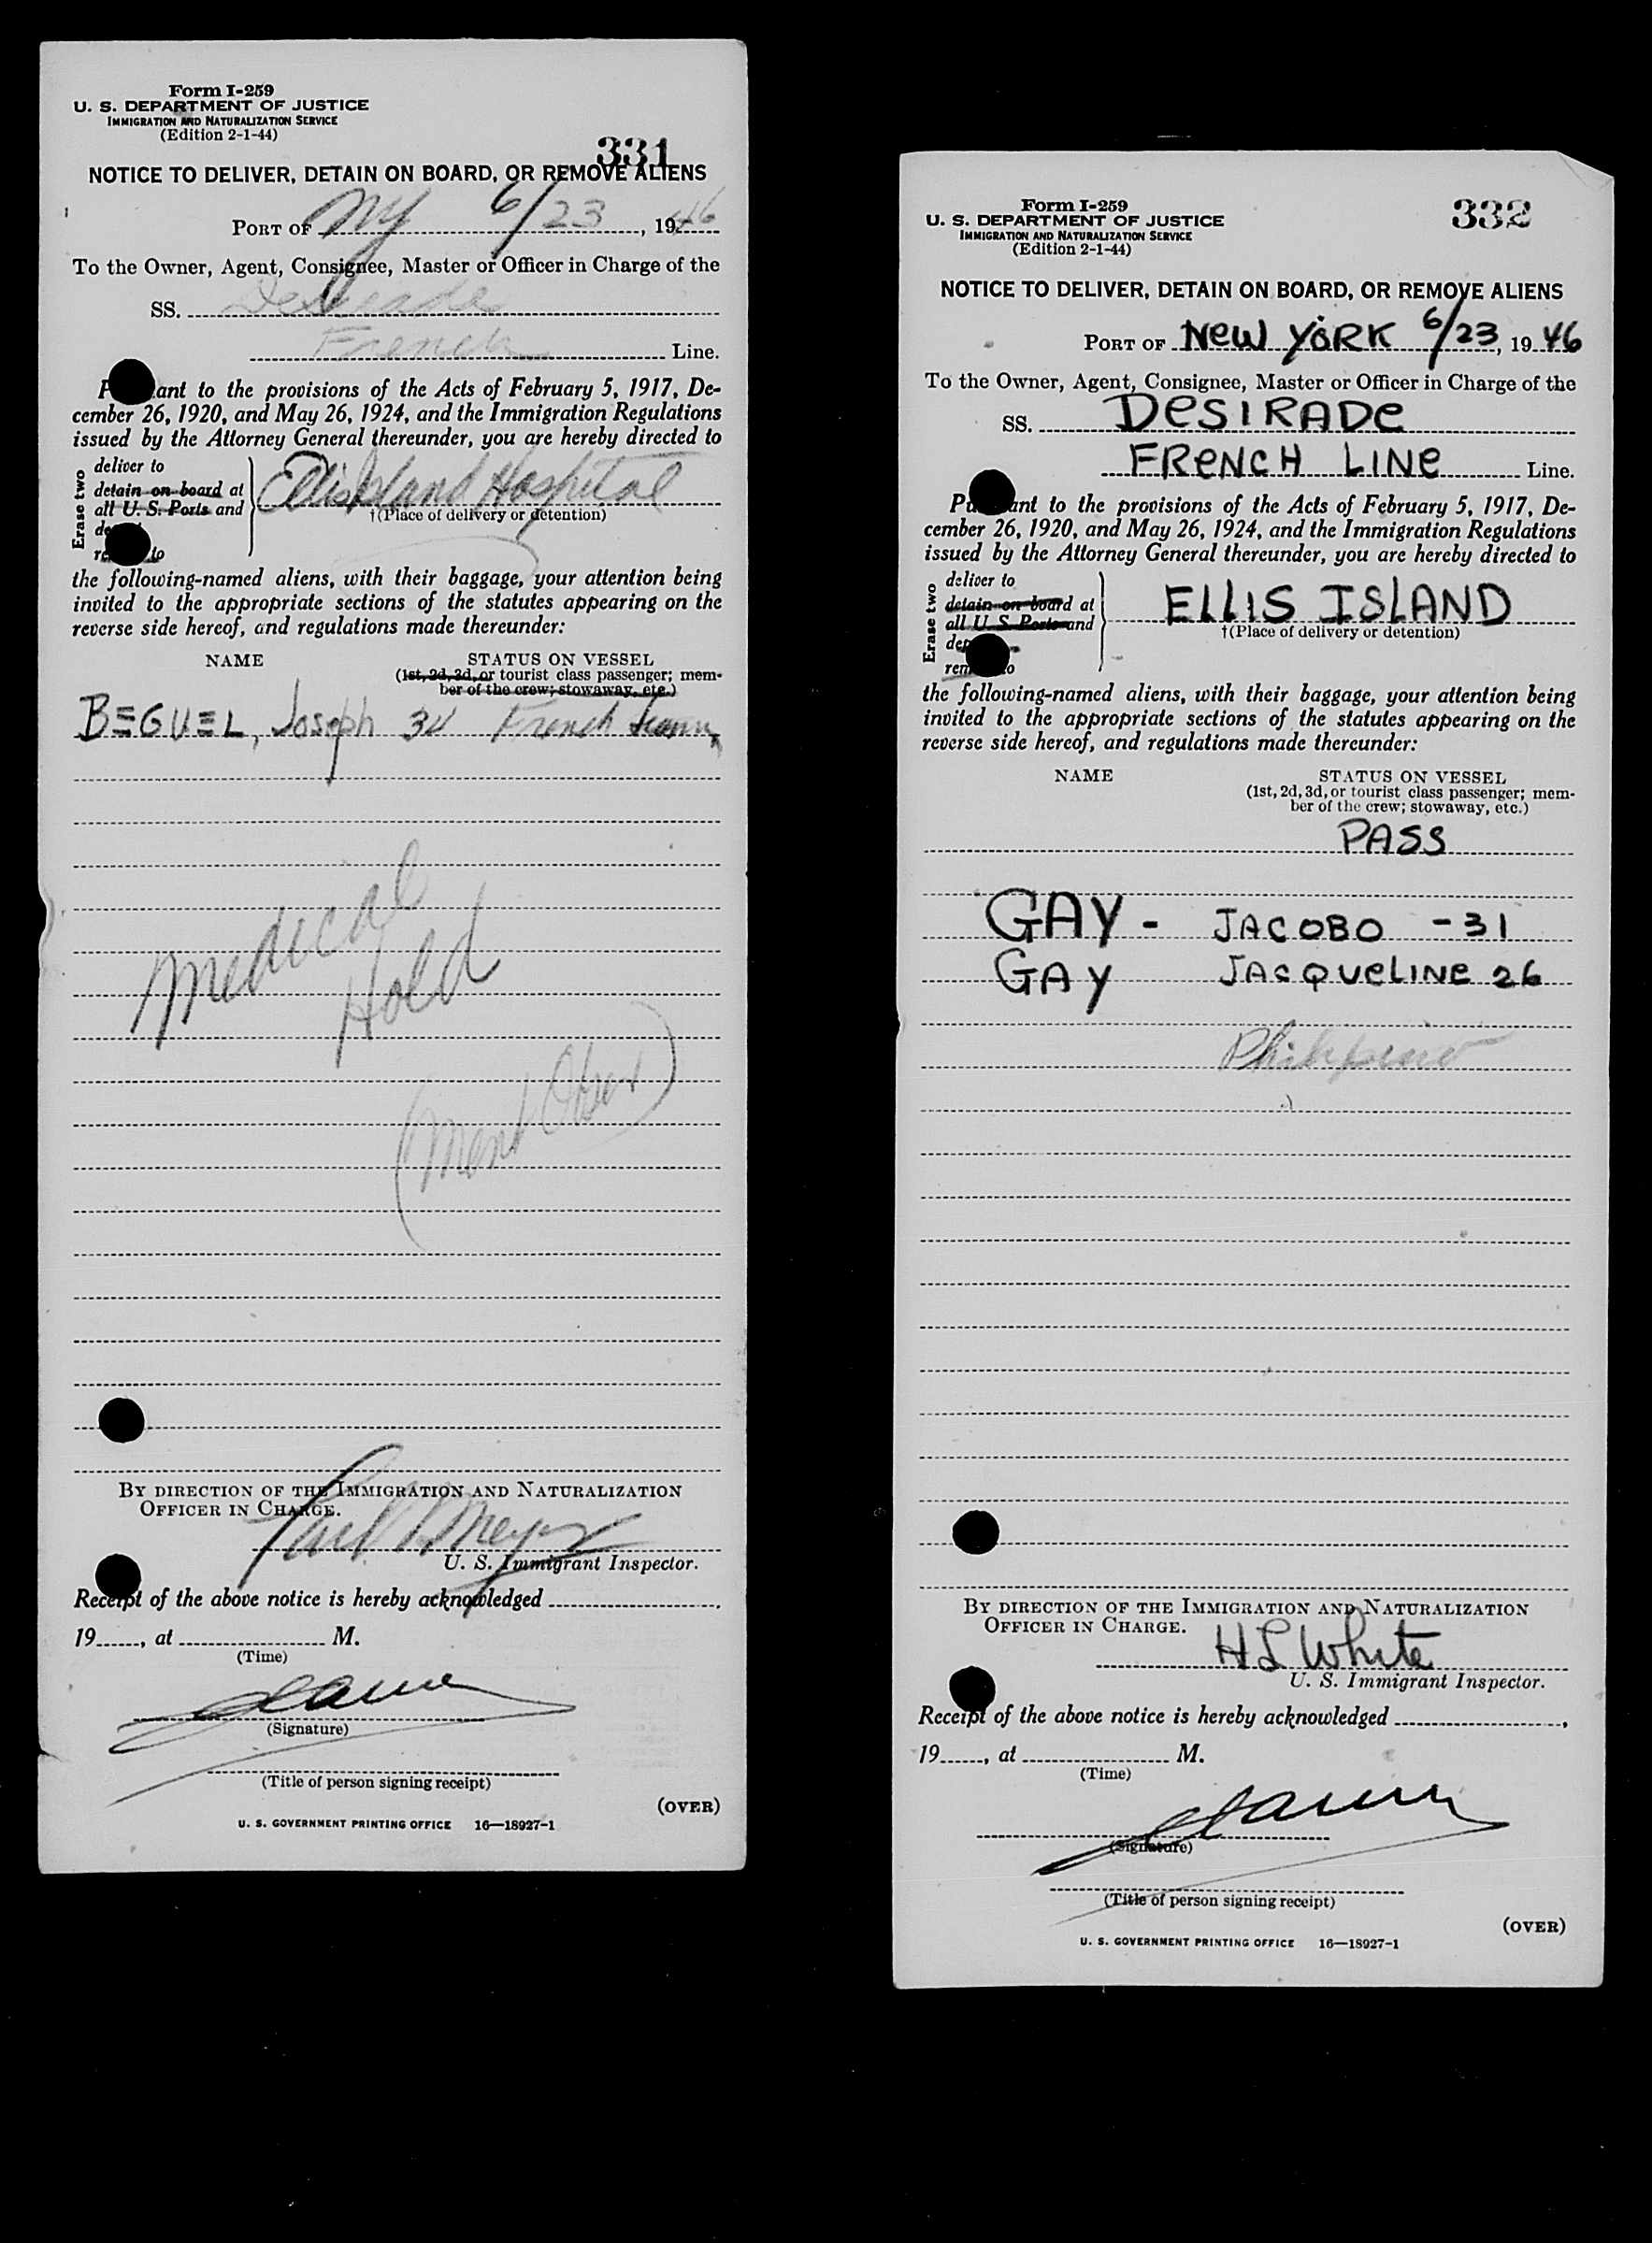 Form I-259
U. S. DEPARTMENT OF JUSTICE
IMMIGRATION AND NATURALIZATION SERVICE
(Edition 2-1-44)
331
NOTICE TO DELIVER, DETAIN ON BOARD, OR REMOVE ALIENS
PORT OF NY 6/23, 1946
To the Owner, Agent, Consignee, Master or Officer in Charge of the
SS. Desirade
French Line.
ant to the provisions of the Acts of February 5, 1917, De-
cember 26, 1920, and May 26, 1924, and the Immigration Regulations
issued by the Attorney General thereunder, you are hereby directed to
Erase two
deliver to
detain on board at
all U. S. Ports and
to
Ellis Island Hospital
†(Place of delivery or detention)
the following-named aliens, with their baggage, your attention being
invited to the appropriate sections of the statutes appearing on the
reverse side hereof, and regulations made thereunder:
NAME STATUS ON VESSEL
(1st, 2d, 3d, or tourist class passenger; mem-
ber of the crew; stowaway, etc.)
BEGUEL, Joseph French
Medical
Hold
(Ment Obser)
BY DIRECTION OF THE IMMIGRATION AND NATURALIZATION
OFFICER IN CHARGE.
Meyer
U. S. Immigrant Inspector.
Receipt of the above notice is hereby acknowledged ,
19 , at M.
(Time)
(Signature)
(Title of person signing receipt)
(OVER)
U. S. GOVERNMENT PRINTING OFFICE 16—18927-1
Form I-259
U. S. DEPARTMENT OF JUSTICE
IMMIGRATION AND NATURALIZATION SERVICE
(Edition 2-1-44)
332
NOTICE TO DELIVER, DETAIN ON BOARD, OR REMOVE ALIENS
PORT OF NEW YORK 6/23, 1946
To the Owner, Agent, Consignee, Master or Officer in Charge of the
SS. DESIRADE
FRENCH LINE Line.
Pu ant to the provisions of the Acts of February 5, 1917, De-
cember 26, 1920, and May 26, 1924, and the Immigration Regulations
issued by the Attorney General thereunder, you are hereby directed to
Erase two
deliver to
detain on board at
all U. S. Ports and
ELLIS ISLAND
†(Place of delivery or detention)
the following-named aliens, with their baggage, your attention being
invited to the appropriate sections of the statutes appearing on the
reverse side hereof, and regulations made thereunder:
NAME STATUS ON VESSEL
(1st, 2d, 3d, or tourist class passenger; mem-
ber of the crew; stowaway, etc.)
PASS
GAY - JACOBO - 31
GAY JACQUELINE 26
BY DIRECTION OF THE IMMIGRATION AND NATURALIZATION
OFFICER IN CHARGE.
H L White
U. S. Immigrant Inspector.
Receipt of the above notice is hereby acknowledged ,
19 , at M.
(Time)
(Signature)
(Title of person signing receipt)
(OVER)
U. S. GOVERNMENT PRINTING OFFICE 16—18927-1